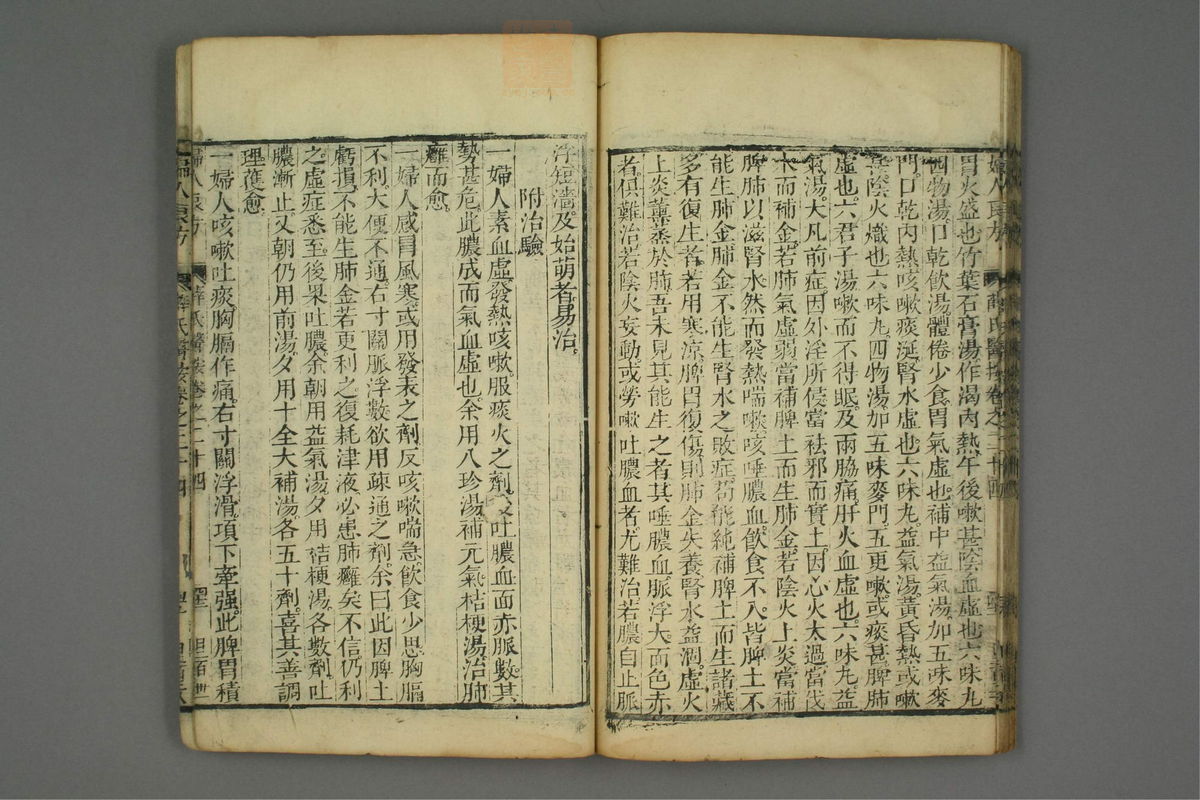 胃火盛也竹葉石膏湯作渴內熱午後嗽甚陰血虛也六味丸
四物湯口乾飲湯體倦少食胃氣虛也補中益氣湯加五味麥
門口乾內熱咳嗽痰涎腎水虛也六味丸益氣湯黃昏熱或嗽
陰火熾也六味丸四物湯加五味麥門五更嗽或痰甚脾肺
虛也六君子湯嗽而不得眠及兩脇痛肝火血虛也六味丸益
氣湯大凡前症因外淫所侵當祛邪而實土因心火太過當伐
木而補金若肺氣虛弱當補脾土而生肺金若陰火上炎當補
脾肺以滋腎水然而發熱喘嗽咳唾膿血飲食不入皆脾土不
能生肺金肺金不能生腎水之敗症苟能純補脾土而生諸藏
多有復生者若用寒凉脾胃復傷則肺金失養腎水益涸虛火
上炎薰蒸於肺吾未見其能生之者其唾膿血脈浮大而色赤
者俱難治若陰火妄動或勞嗽吐膿血者尤難治若膿自止脈
浮短濇及始萌者易治
附治驗
一婦人素血虛發熱咳嗽服痰火之劑吐膿血面赤脈數其
勢甚危此膿成而氣血虛也余用八珍湯補元氣桔梗湯治肺
癰而愈
一婦人感冒風寒或用發表之劑反咳嗽喘急飲食少思胸膈
不利大便不通右寸關脈浮數欲用疎通之劑余曰此因脾土
虧損不能生肺金若更利之復耗津液必患肺癰矣不信仍利
之虛症悉至後果吐膿余朝用益氣湯夕用桔梗湯各數劑吐
膿漸止又朝仍用前湯夕用十全大補湯各五十劑喜其善調
理獲愈
一婦人咳嗽吐痰胸膈作痛右寸關浮滑項下牽強此脾胃積
婦人良方 薛氏醫按卷之二十四